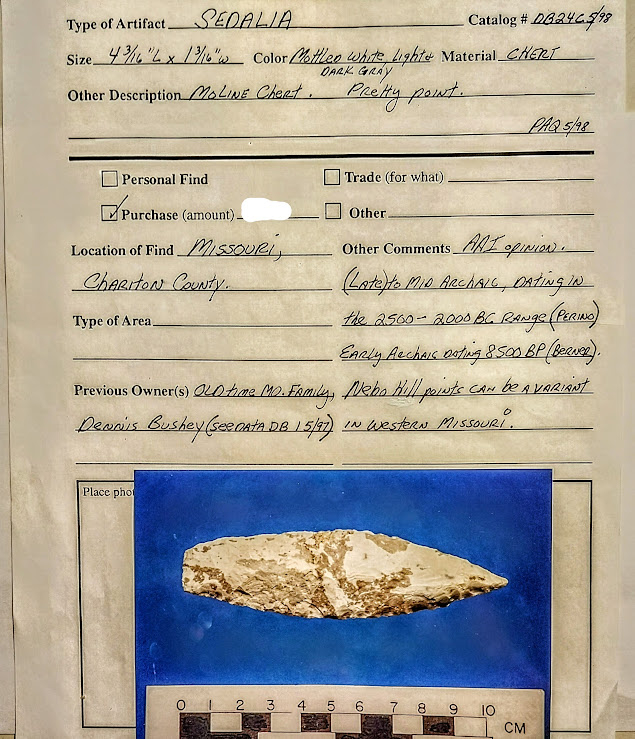 Type of Artifact SEDALIA Catalog # DB24C 5/98
Size 4 3/16"L x 1 3/16"W Color Mottled White, Light & DARK GRAY Material CHERT
Other Description MOLINE CHERT. Pretty point.
PAQ 5/98
Personal Find
Trade (for what)
Purchase (amount)
Other
Location of Find MISSOURI,
CHARITON COUNTY.
Type of Area
Previous Owner(s) OLDtime MO. FAMILY,
Dennis Bushey (see DATA DB 1 5/97)
Other Comments AAI opinion.
(Late) to MID ARCHAIC, DATING IN
the 2500 - 2000 BC RANGE (PERINO)
EARLY ARCHAIC DATING 8500 BP (BERNER).
Nebo Hill points CAN be A VARIANT
IN WESTERN MISSOURI.
Place pho
0 1 2 3 4 5 6 7 8 9 10
CM